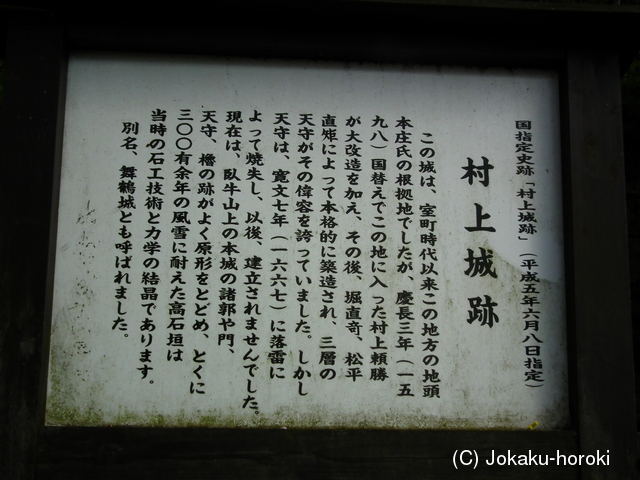 国指定史跡「村上城跡」(平成五年六月八日指定)
村上城跡
この城は、室町時代以来この地方の地頭
本庄氏の根拠地でしたが、慶長三年(一五
九八)国替えでこの地に入った村上頼勝
が大改造を加え、その後、堀直竒、松平
直矩によって本格的に築造され、三層の
天守がその偉容を誇っていました。しかし
天守は、寛文七年(一六六七)に落雷に
よって焼失し、以後、建立されませんでした。
現在は、臥牛山上の本城の諸郭や門、
天守、櫓の跡がよく原形をとどめ、とくに
三〇〇有余年の風雪に耐えた高石垣は
当時の石工技術と力学の結晶であります。
別名、舞鶴城とも呼ばれました。
(C) Jokaku-horoki